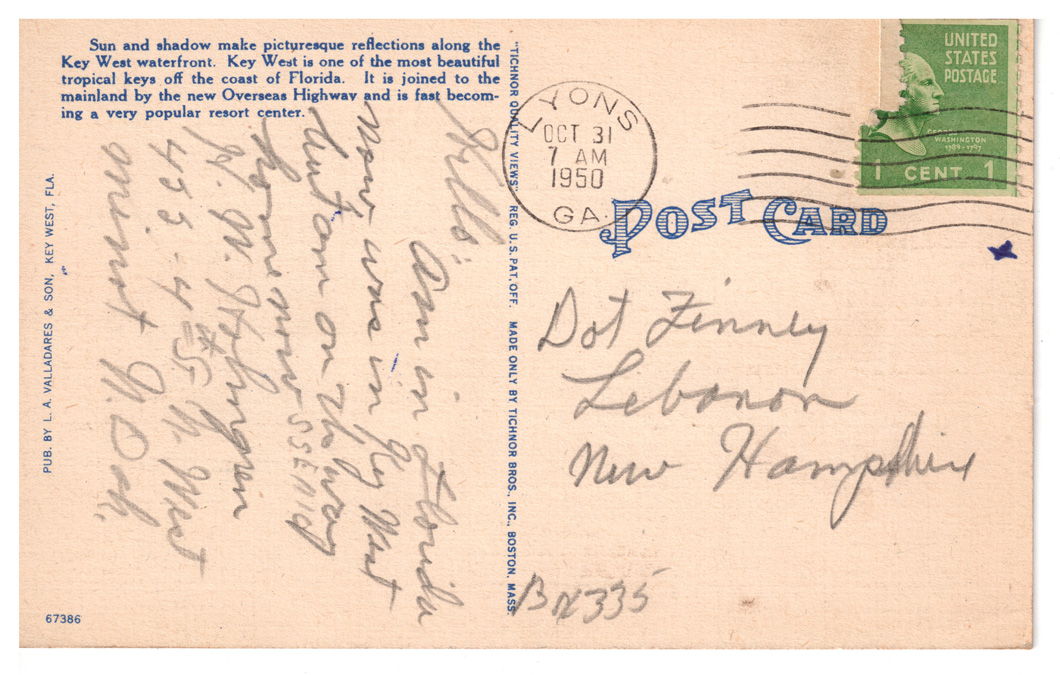 Sun and shadow make picturesque reflections along the
Key West waterfront. Key West is one of the most beautiful
tropical keys off the coast of Florida. It is joined to the
mainland by the new Overseas Highway and is fast becom-
ing a very popular resort center.
Hello
Am in Florida
now, was in Key West
but am on the way
home now
W. W.
455 - 4 St N. West
minot N. Dak.
PUB. BY L. A. VALLADARES & SON, KEY WEST, FLA.
67386
"TICHNOR QUALITY VIEWS" REG. U. S. PAT. OFF. MADE ONLY BY TICHNOR BROS., INC., BOSTON, MASS.
LYONS
OCT 31
7 AM
1950
GA.
UNITED
STATES
POSTAGE
GEORGE
WASHINGTON
1789-1797
1 CENT 1
POST CARD
Dot Finney
Lebanon
New Hampshire
335